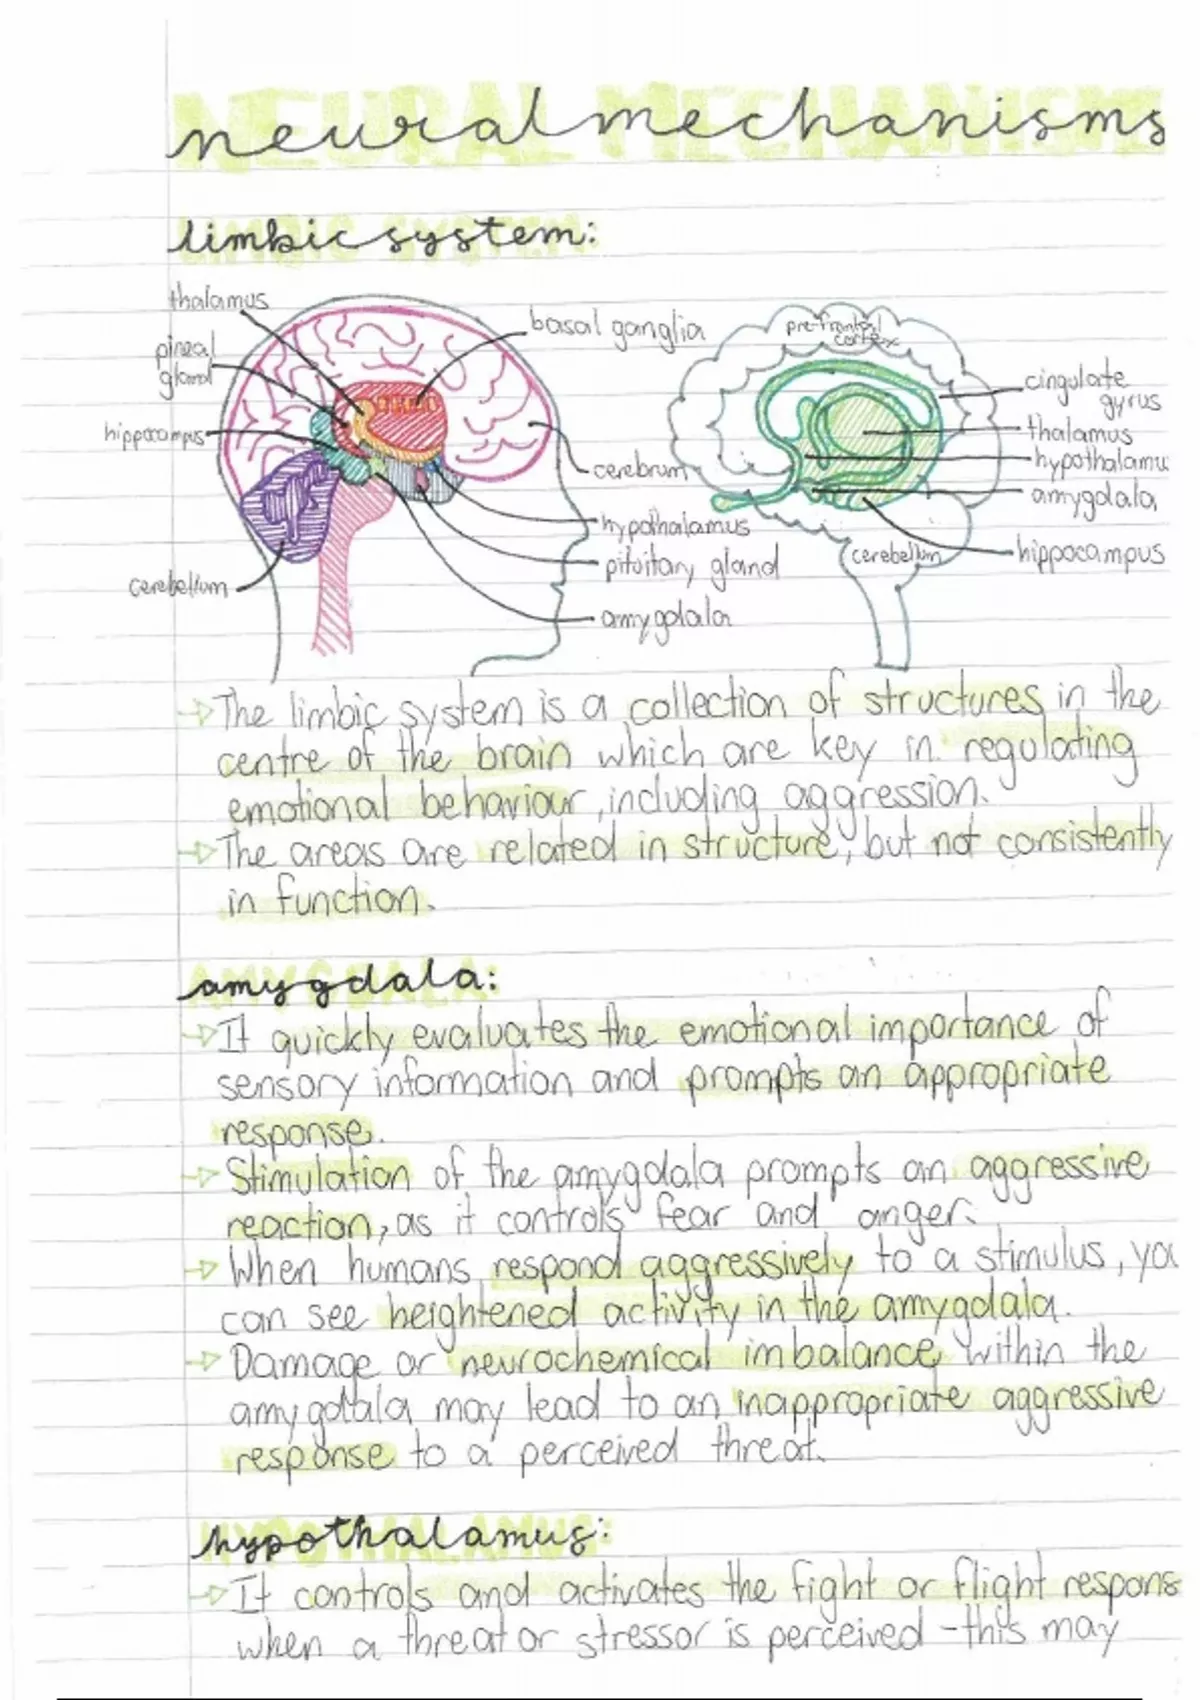 neural mechanisms
limbic system:
thalamus
pineal
gland
hippocampus
cerebellum
basal ganglia
cerebrum
hypothalamus
pituitary gland
amygdala
pre-frontal
cortex
cingulate
gyrus
thalamus
hypothalamu
amygdala
hippocampus
cerebellum
→The limbic system is a collection of structures in the
centre of the brain which are key in regulating
emotional behaviour, including aggression.
→The areas are related in structure, but not consistently
in function.
amygdala:
→It quickly evaluates the emotional importance of
sensory information and prompts an appropriate
response.
→Stimulation of the amygdala prompts an aggressive
reaction, as it controls fear and anger.
→When humans respond aggressively to a stimulus, yo
can see heightened activity in the amygdala.
→Damage or neurochemical imbalance within the
amygdala may lead to an inappropriate aggressive
response to a perceived threat.
hypothalamus:
→It controls and activates the fight or flight respons
when a threat or stressor is perceived - this may